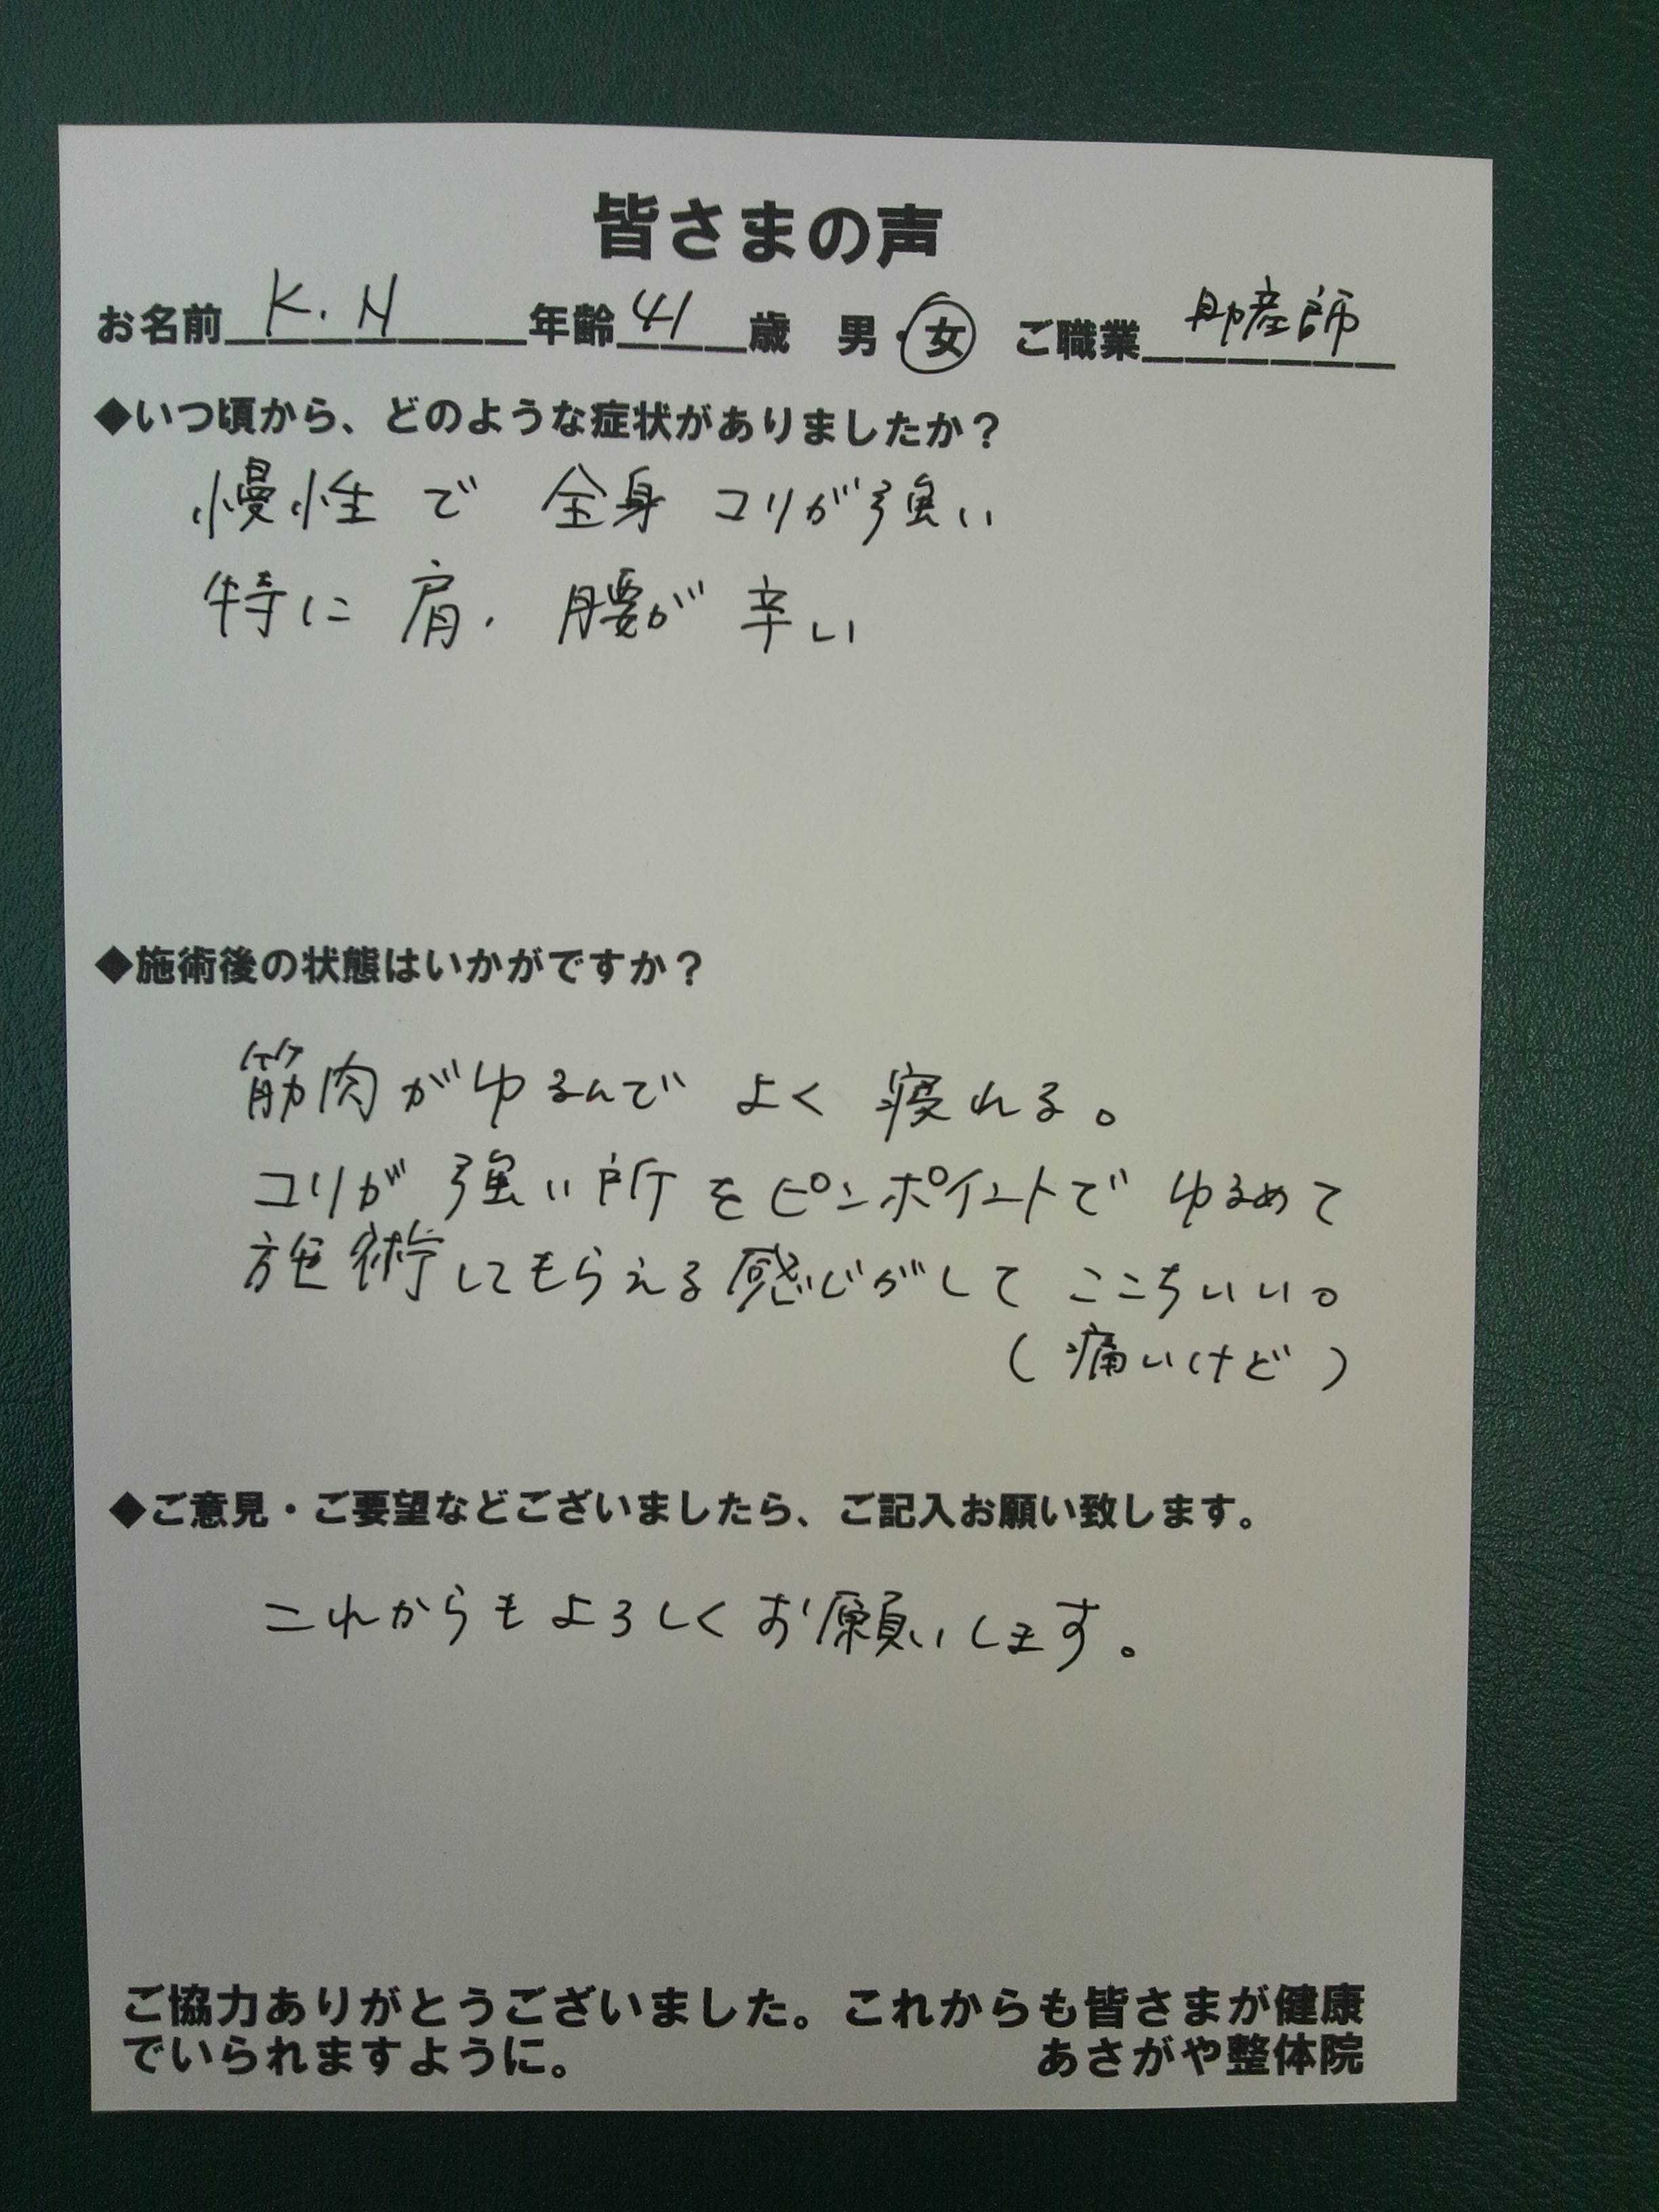 皆さまの声
お名前 K.N 年齢 41 歳 男・女 ご職業 助産師
◆いつ頃から、どのような症状がありましたか？
慢性で 全身 コリが強い
特に 肩、腰が 辛い
◆施術後の状態はいかがですか？
筋肉がゆるんで よく 寝れる。
コリが 強い所 をピンポイントで ゆるめて
施術してもらえる感じがして ここちいい。
（痛いけど）
◆ご意見・ご要望などございましたら、ご記入お願い致します。
これからもよろしくお願いします。
ご協力ありがとうございました。これからも皆さまが健康
でいられますように。 あさがや整体院